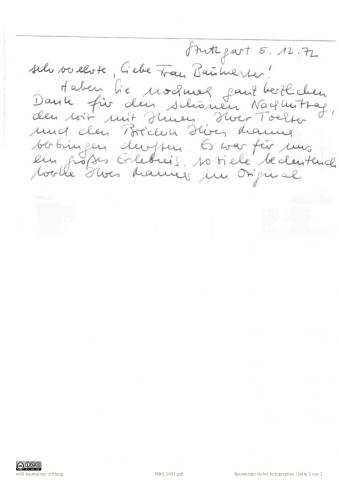 Stuttgart 5.12.72
sehr verehrte, liebe Frau Baumeister!
Haben Sie nochmals ganz herzlichen
Dank für den schönen Nachmittag,
den wir mit Ihnen Ihrer Tochter
und den Bildern Ihres Mannes
verbringen durften. Es war für uns
ein großes Erlebnis, so viele bedeutende
Werke Ihres Mannes im Original
willi baumeister stiftung
Seite 1 von 2